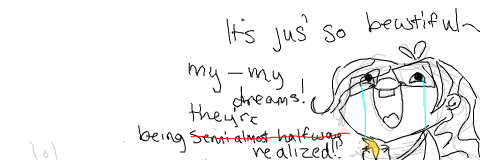 It's jus' so beautiful~
my—my
dreams!
they're
being semi almost halfway
realized!!
lol